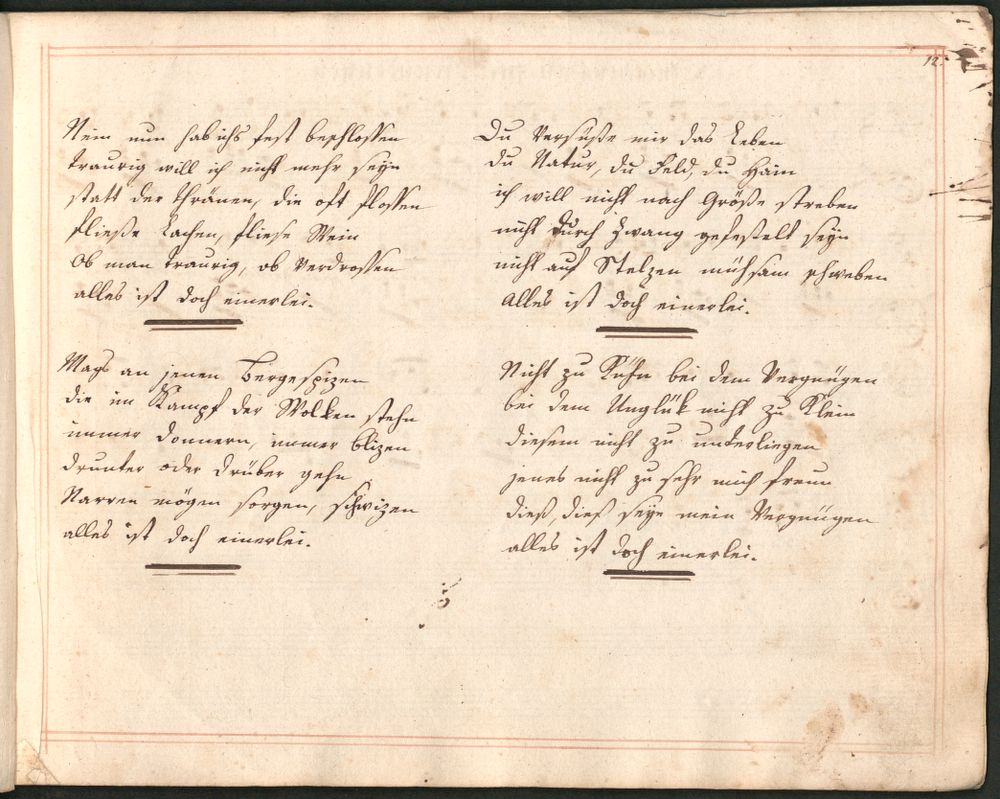 12.
Nein nun hab ichs fest beschlossen
traurig will ich nicht mehr seyn
statt der Thränen, die oft flossen
fließe Lachen, fließe Wein
Ob man traurig, ob verdrossen
alles ist doch einerlei.
Mags an jenen Bergespizen
die im Kampf der Wolken stehn
immer donnern, immer blizen
drunter oder drüber gehn
Narren mögen sorgen, schwizen
alles ist doch einerlei.
Du versüße mir das Leben
du Natur, du Feld, du Hain
ich will nicht nach Größe streben
nicht durch Zwang gefesselt seyn
nicht auf Stelzen mühsam schweben
alles ist doch einerlei.
Nicht zu Kühn bei dem Vergnügen
bei dem Unglük nicht zu Klein
diesem nicht zu unterliegen
jenes nicht zu sehr mich freun
dieß, dieß seye mein Vergnügen
alles ist doch einerlei.